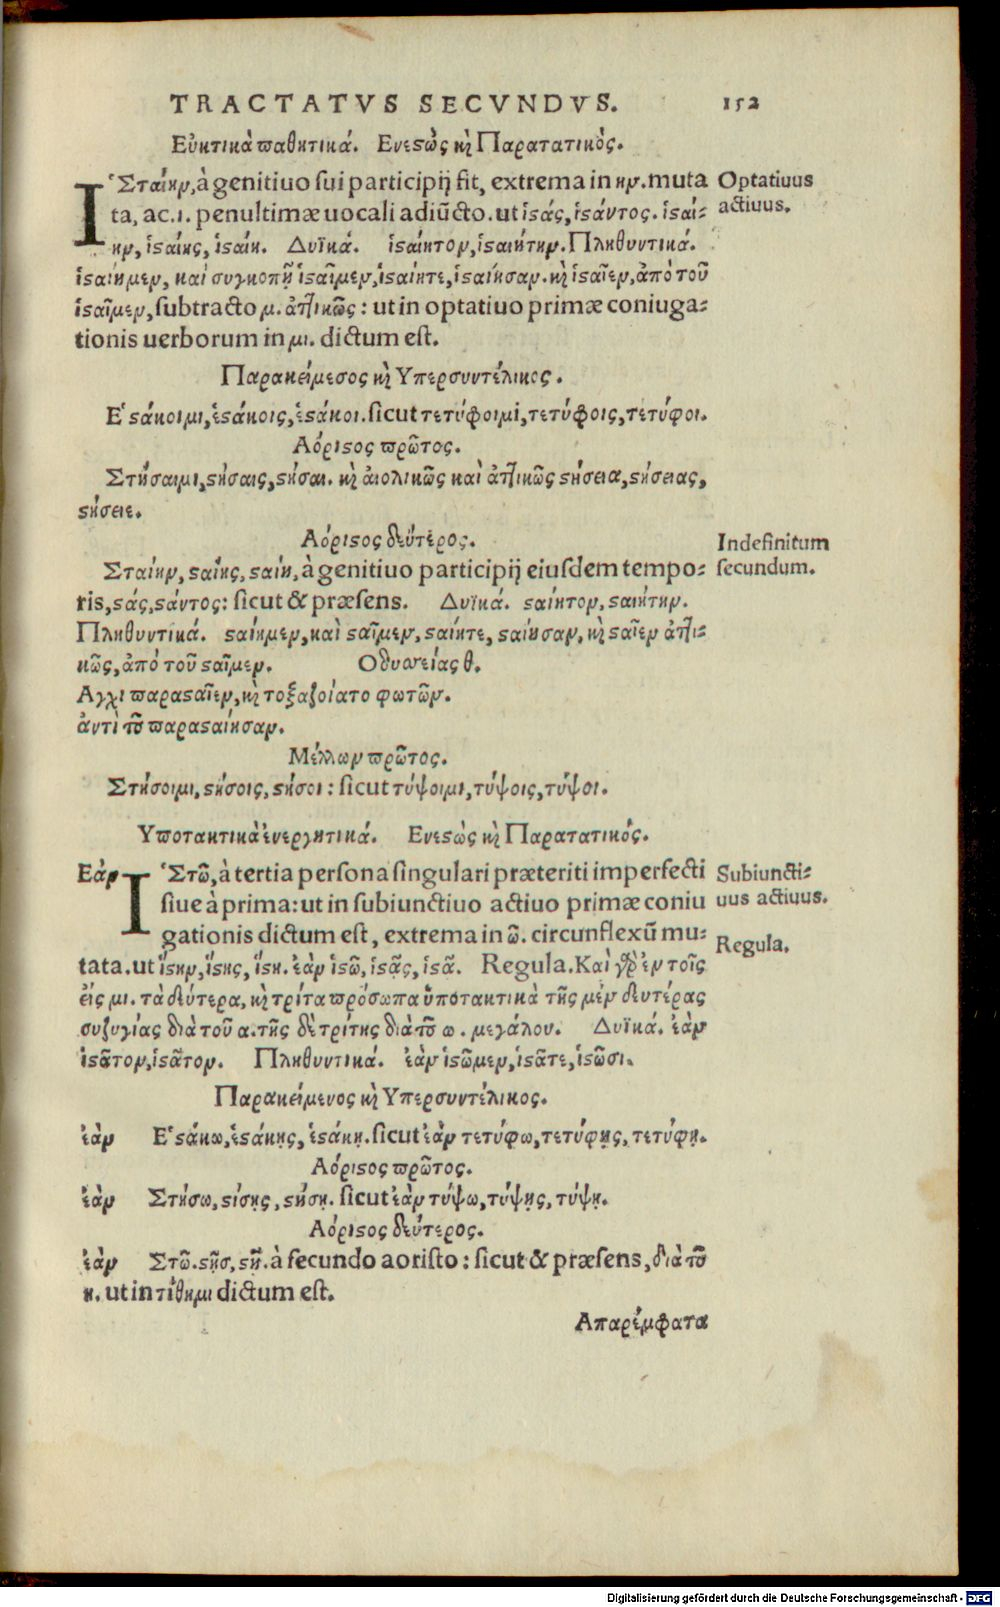 TRACTATVS SECVNDVS. 152
Εὐκτικὰ παθητικά. Ενεϛὼς κὶ Παρατατικὸς.
ἹΣταίην, à genitiuo sui participij fit, extrema in ην. muta
ta, ac .ι. penultimæ uocali adiũcto. ut ἱϛάς, ἱϛάντος. ἱϛαί-
ην, ἱϛαίης, ἱϛαίη. Δυϊκά. ἱϛαίητον, ἱϛαιήτην. Πληθυντικά.
ἱϛαίημεν, καὶ συγκοπῇ ἱϛαῖμεν, ἱϛαίητε, ἱϛαίησαν. κὶ ἱϛαῖεν, ἀπὸ τοῦ
ἱϛαῖμεν, subtracto μ. ἀττικῶς: ut in optatiuo primæ coniuga-
tionis uerborum in μι. dictum est.
Optatiuus
actiuus.
Παρακείμεσος κὶ Υπερσυντέλικος.
Εʽϛάκοιμι, ἑϛάκοις, ἑϛάκοι. sicut τετύφοιμι, τετύφοις, τετύφοι.
Αόριϛος πρῶτος.
Στήσαιμι, ϛήσαις, ϛήσαι. κὶ ἀιολικῶς καὶ ἀττικῶς ϛήσεια, ϛήσειας,
ϛήσειε.
Αόριϛος δεύτερος.
Σταίην, ϛαίης, ϛαίη, à genitiuo participij eiusdem tempo-
ris, ϛάς, ϛάντος: sicut & præsens. Δυϊκά. ϛαίητον, ϛαιήτην.
Πληθυντικά. ϛαίημεν, καὶ ϛαῖμεν, ϛαίητε, ϛαίησαν, κὶ ϛαῖεν ἀττι-
κῶς, ἀπὸ τοῦ ϛαῖμεν. Οδυσσείας θ.
Αγχι παραϛαῖεν, κὶ τοξαζοίατο φωτῶν.
ἀντὶ τοῦ παραϛαίησαν.
Indefinitum
secundum.
Μέλλων πρῶτος.
Στήσοιμι, ϛήσοις, ϛήσοι: sicut τύψοιμι, τύψοις, τύψοι.
Υποτακτικὰ ἐνεργητικά. Ενεϛὼς κὶ Παρατατικός.
Εὰν ἹΣτῶ, à tertia persona singulari præteriti imperfecti
siue à prima: ut in subiunctiuo actiuo primæ coniu
gationis dictum est, extrema in ῶ. circunflexũ mu-
tata. ut ἵϛην, ἵϛης, ἵϛη. ἐὰν ἱϛῶ, ἱϛᾷς, ἱϛᾷ. Regula. Καὶ γὰρ ἐν τοῖς
εἰς μι. τὰ δεύτερα, κὶ τρίτα πρόσωπα ὑποτακτικὰ τῆς μὲν δευτέρας
συζυγίας διὰ τοῦ α. τῆς δὲ τρίτης διὰ τοῦ ω. μεγάλου. Δυϊκά. ἐὰν
ἱϛᾶτον, ἱϛᾶτον. Πληθυντικά. ἐὰν ἱϛῶμεν, ἱϛᾶτε, ἱϛῶσι.
Subiuncti-
uus actiuus.
Regula.
Παρακείμενος κὶ Υπερσυντέλικος.
ἐὰν Εʽϛάκω, ἑϛάκῃς, ἑϛάκῃ. sicut ἐὰν τετύφω, τετύφῃς, τετύφῃ.
Αόριϛος πρῶτος.
ἐὰν Στήσω, ϛίσῃς, ϛήσῃ. sicut ἐὰν τύψω, τύψῃς, τύψῃ.
Αόριϛος δεύτερος.
ἐὰν Στῶ. ϛῇσ, ϛῇ. à secundo aoristo: sicut & præsens, διὰ τοῦ
η. ut in τίθημι dictum est.
Απαρέμφατα
Digitalisierung gefördert durch die Deutsche Forschungsgemeinschaft - DFG